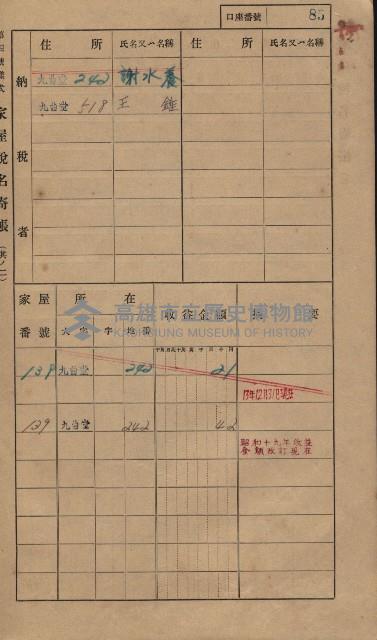 口座番號 85
第四號樣式 家屋稅名寄帳（其ノ二）
納稅者
住所 氏名又ハ名稱 住所 氏名又ハ名稱
九曲堂 242 謝水養
九曲堂 518 王
家屋番號 所在 收益金額 摘要
大字 字 地番
139 九曲堂 242 21
13年12月31日
139 九曲堂 242 42
昭和十九年收益
金額改訂現在
高雄市立歷史博物館
KAOHSIUNG MUSEUM OF HISTORY